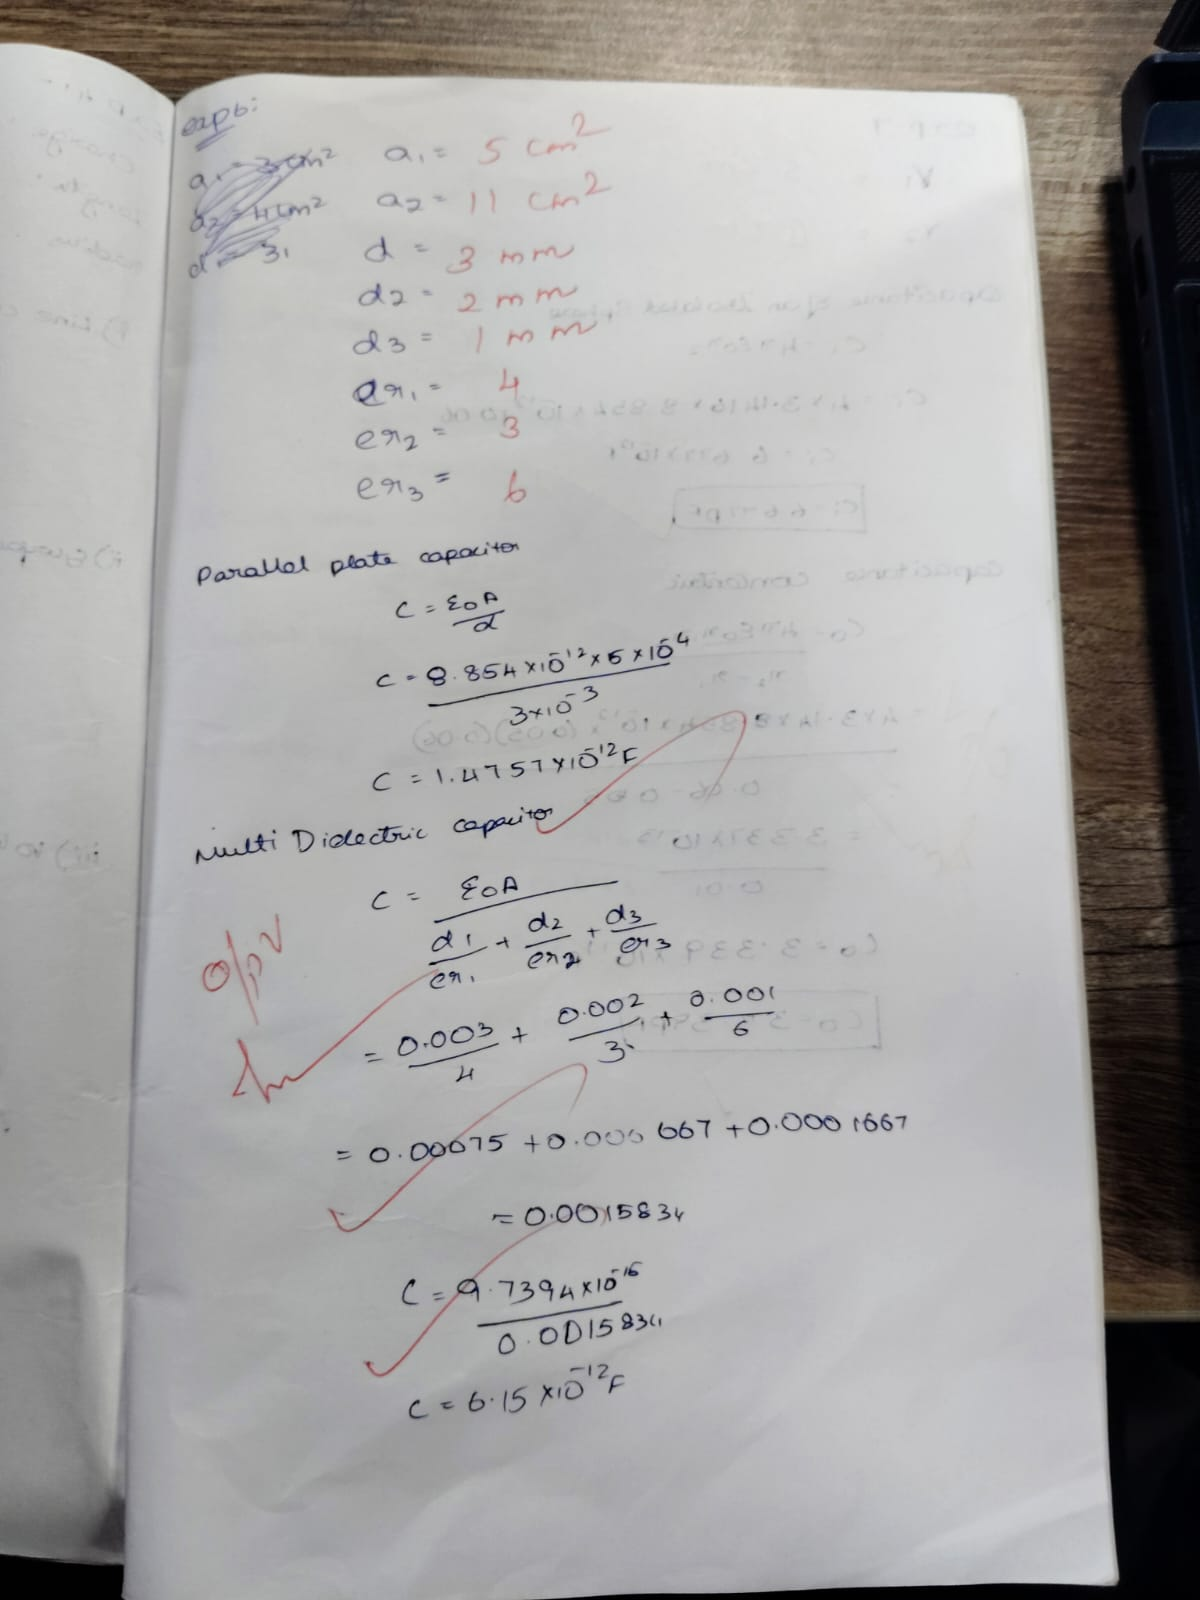 exp 6:
a1 = 3 cm² a1 = 5 cm²
a2 = 4 cm² a2 = 11 cm²
d = 3. d = 3 mm
d2 = 2 mm
d3 = 1 mm
er1 = 4
er2 = 3
er3 = 6
Parallel plate capacitor
C = ε0A / d
C = 8.854 × 10⁻¹² × 5 × 10⁻⁴ / 3×10⁻³
C = 1.4757 × 10⁻¹² F
Multi Dielectric capacitor
C = ε0A / d1/er1 + d2/er2 + d3/er3
o/p ✓
= 0.003/4 + 0.002/3 + 0.001/6
= 0.00075 + 0.000667 + 0.0001667
= 0.0015834
C = 9.7394 × 10⁻¹⁵ / 0.0015834
C = 6.15 × 10⁻¹² F